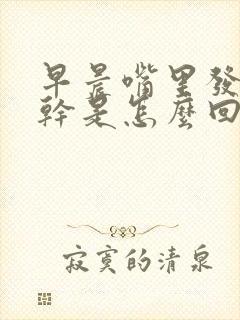 早晨嘴里發
幹是怎麼回
寂寞的清泉